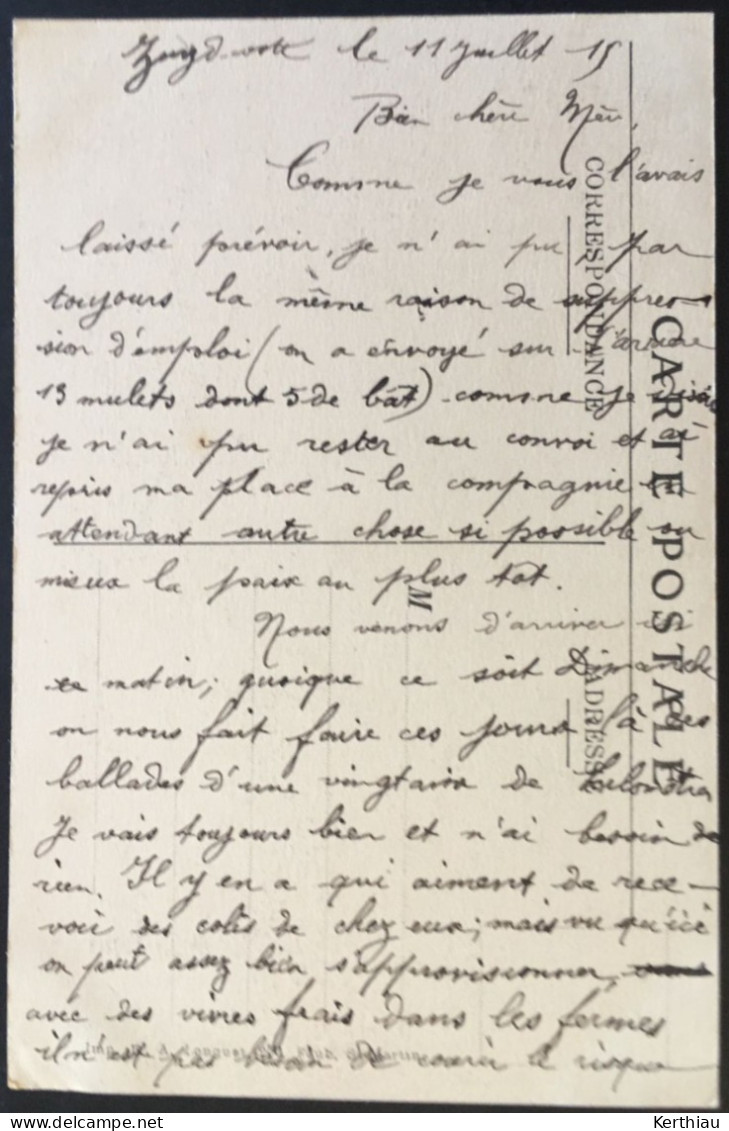 Zuydcote le 11 Juillet 15
Bien chère Mère,
Comme je vous l'avais
laissé prévoir, je n'ai pu, par
toujours la même raison de suppres-
sion d'emploi (on a envoyé sur l'arrière
13 mulets dont 5 de bât) comme je disais
je n'ai pu rester au convoi et ai
repris ma place à la compagnie en
attendant autre chose si possible ou
mieux la paix au plus tôt.
Nous venons d'arriver ici
ce matin; quoique ce soit Dimanche
on nous fait faire ces jours là des
ballades d'une vingtaine de kilomètres
Je vais toujours bien et n'ai besoin de
rien. Il y en a qui aiment de rece-
voir des colis de chez eux; mais vu qu'ici
on peut assez bien s'approvisionner
avec des vivres frais dans les fermes
il n'est pas besoin de courir le risque
CARTE POSTALE
CORRESPONDANCE
ADRESSE
M
Kerthiau